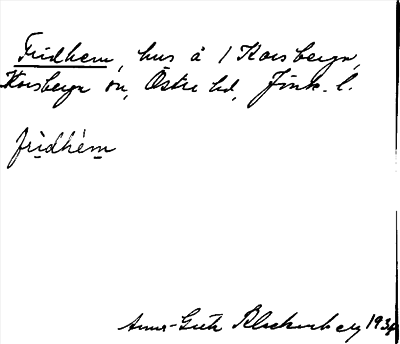 Fridhem, hus å 1 Korsberga,
Korsberga sn, Östra hd, Jönk. l.
frìdhém
Anna-Greta Blackenberg 193